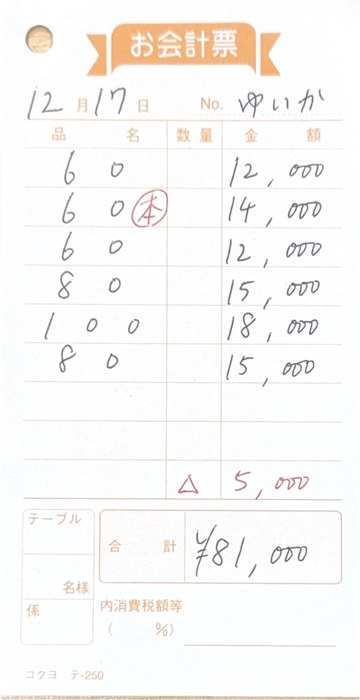 お会計票
12月17日 No. ゆいか
品名 数量 金額
60 12,000
60 本 14,000
60 12,000
80 15,000
100 18,000
80 15,000
△ 5,000
テーブル
名様
係
合計 ¥81,000
内消費税額等
( %)
コクヨ テ-250